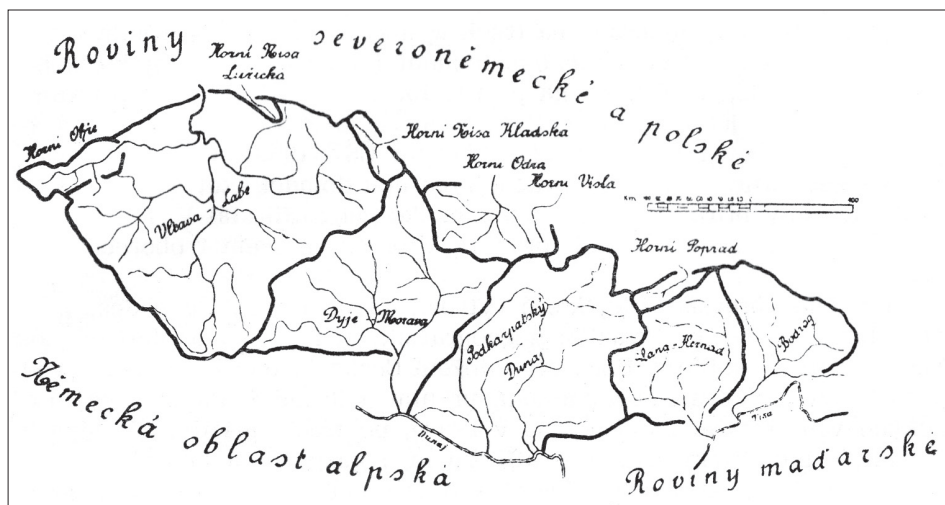 Roviny severoněmecké a polské
Horní Nisa
Lužická
Horní Ohře
Horní Nisa Kladská
Horní Odra
Horní Visla
Km.
100
Vltava Labe
Horní Poprad
Dyje - Morava
Podkarpatský
Dunaj
Slaná-Hornad
Bodrog
Tisa
Dunaj
Německá oblast alpská
Roviny maďarské